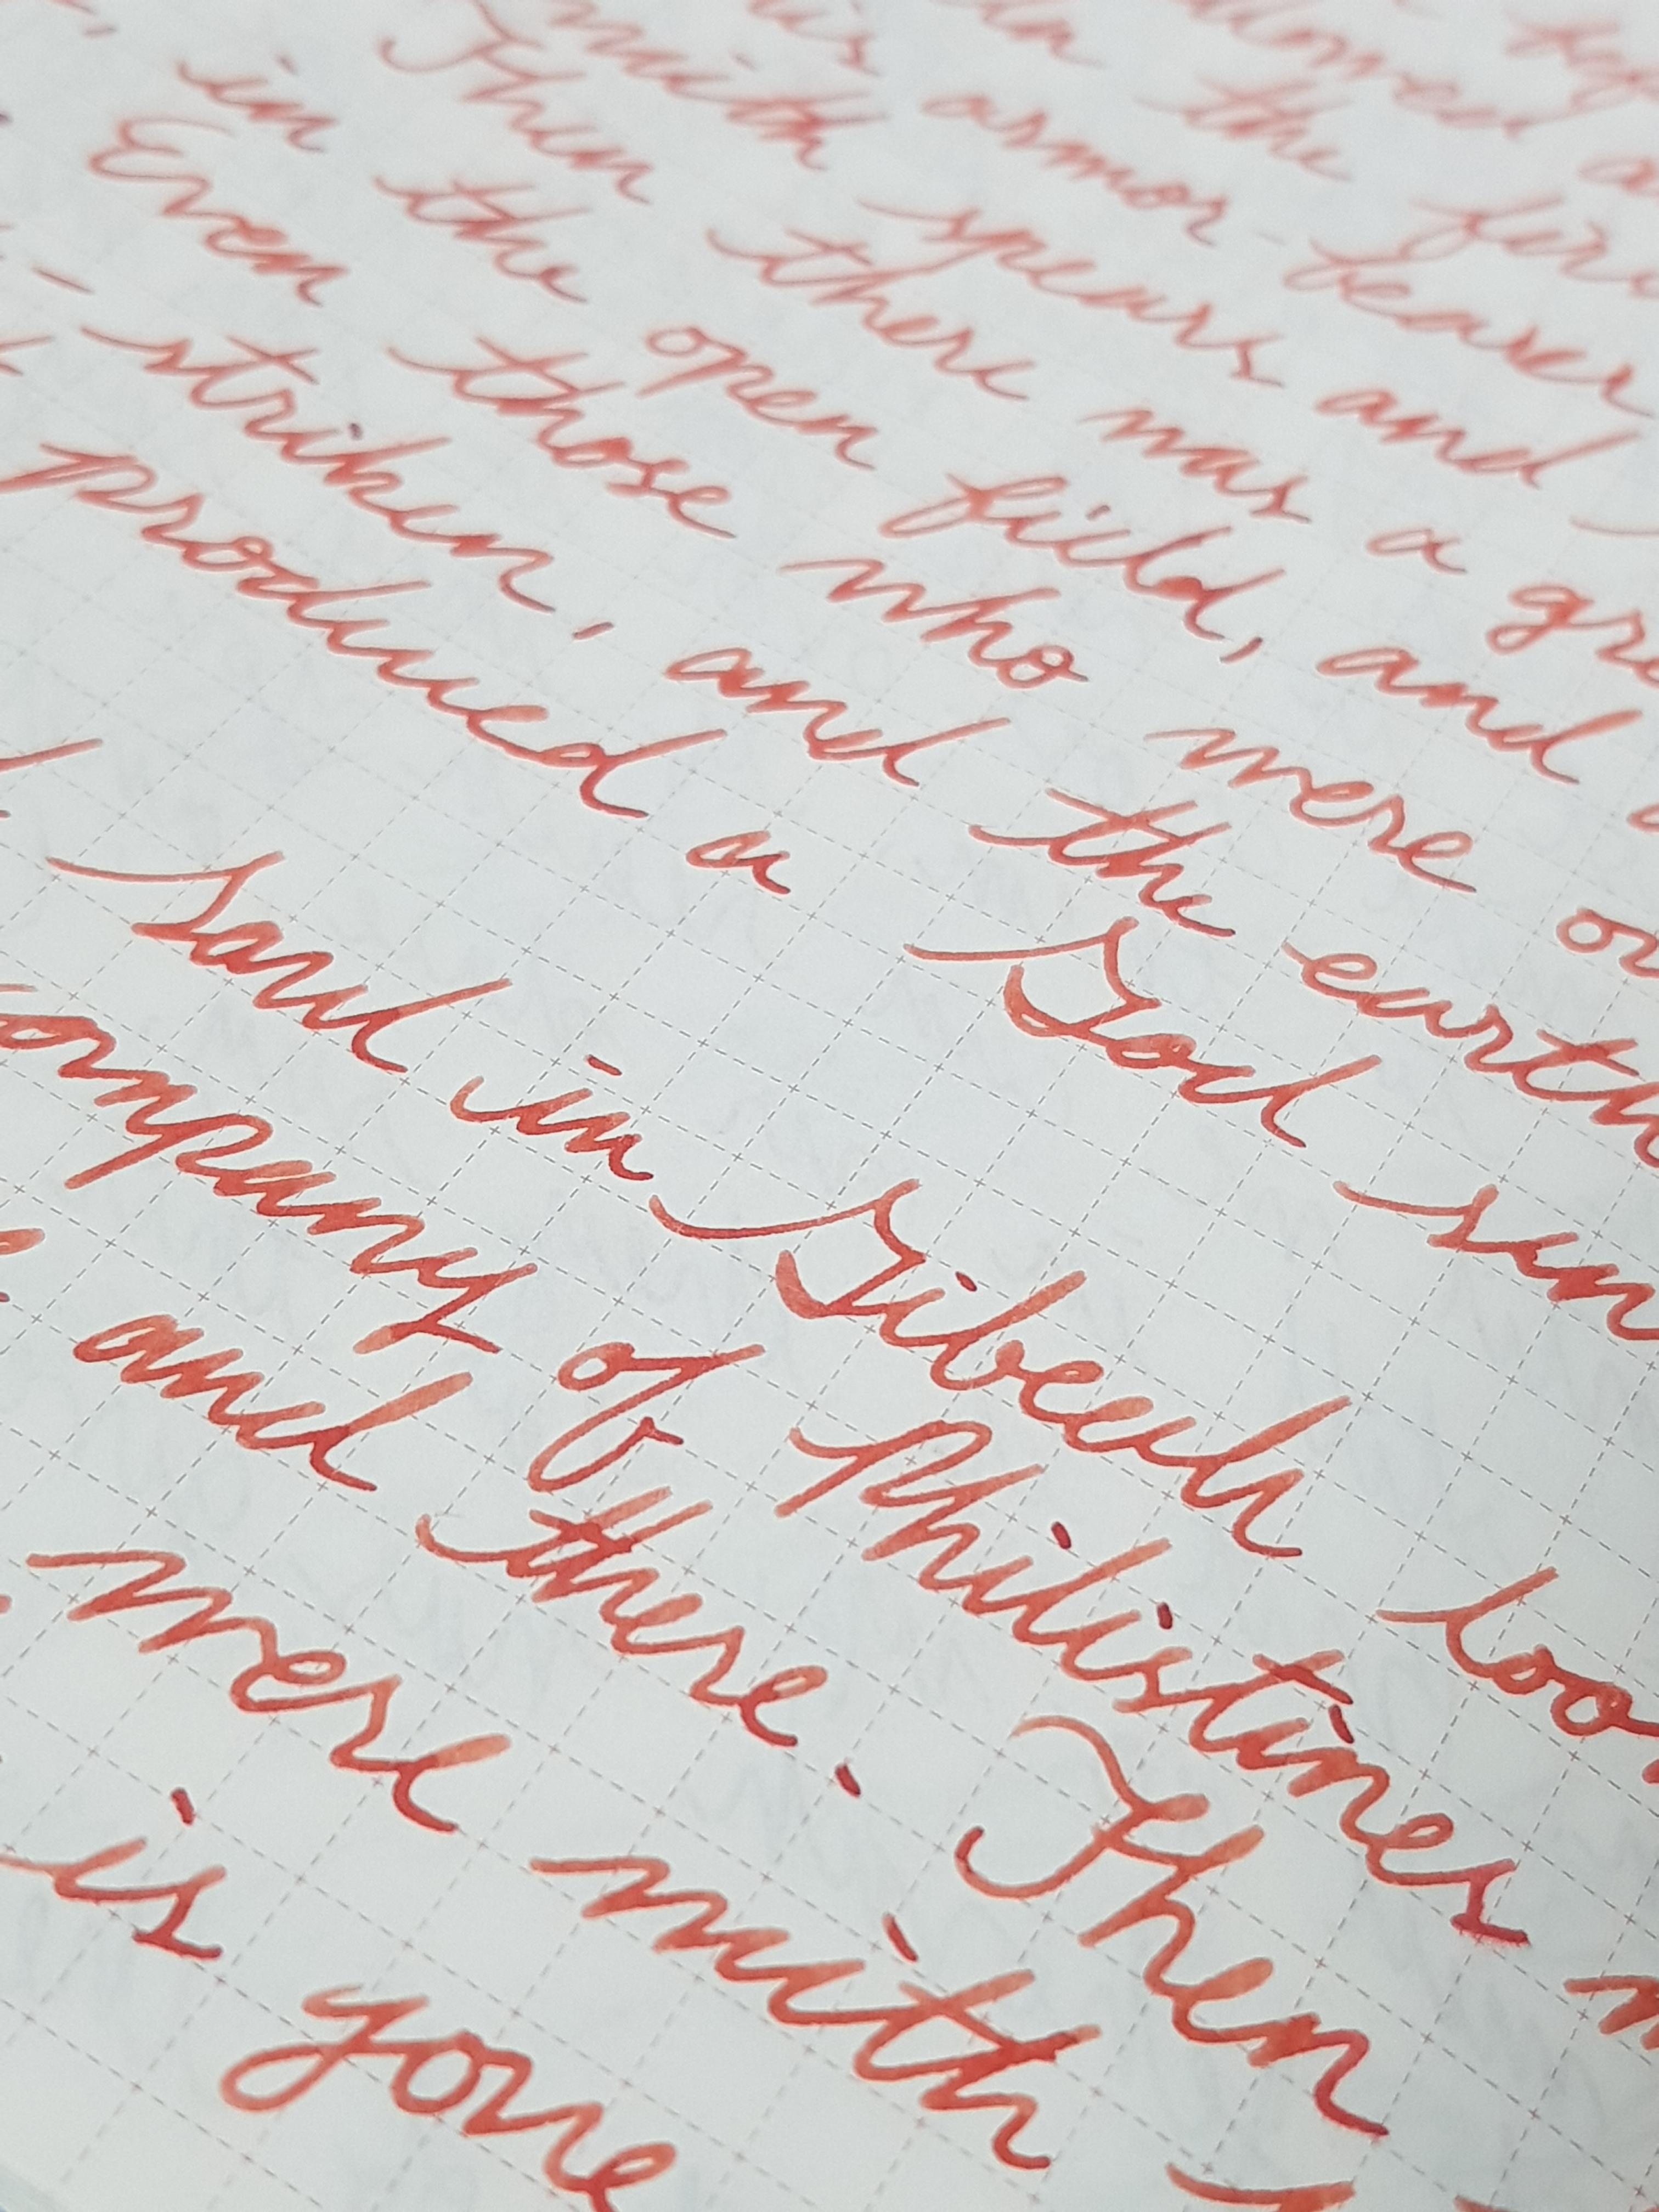 the
is armor-bearer
with spears and
Then there was a gre
in the open field, and
Even those who were ou
-striken, and the earth
produced a God sen
Saul in Gibeah loo
company of Philistines
and there. Then
were with
is gone